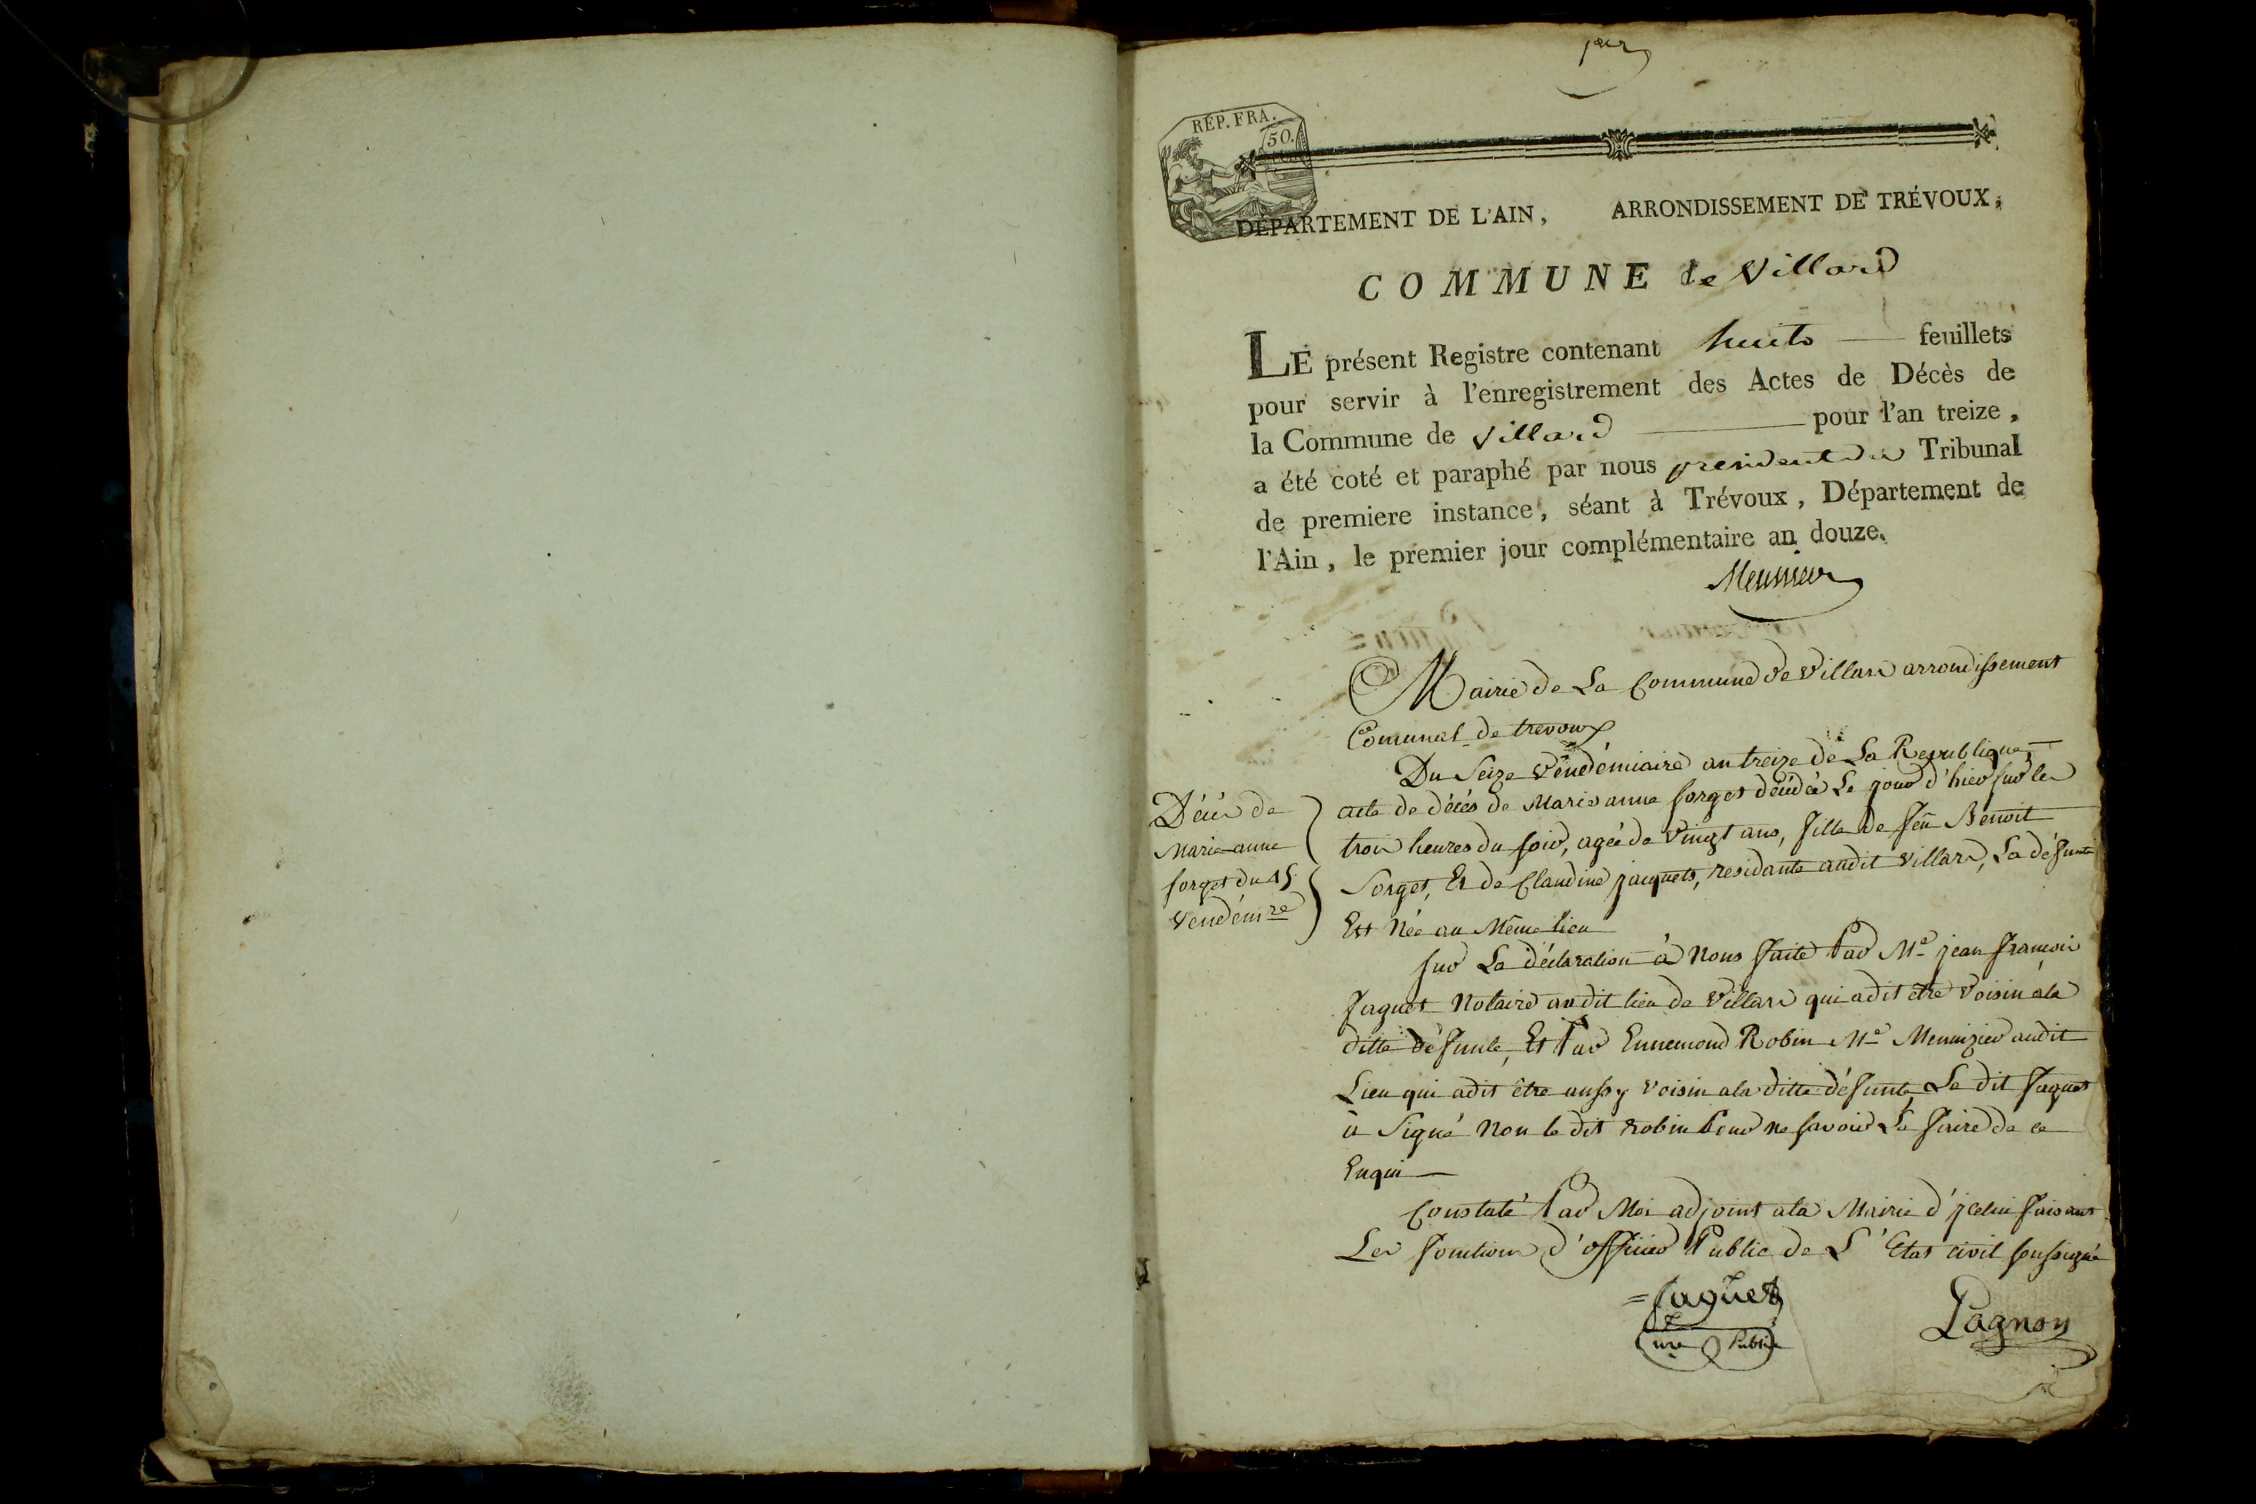 per
REP. FRA.
50.
DÉPARTEMENT DE L'AIN, ARRONDISSEMENT DE TRÉVOUX,
COMMUNE de Villard
LE présent Registre contenant huit feuillets
pour servir à l'enregistrement des Actes de Décès de
la Commune de Villard pour l'an treize,
a été coté et paraphé par nous president du Tribunal
de premiere instance, séant à Trévoux, Département de
l'Ain, le premier jour complémentaire an douze.
Meunier
Mairie de La Commune de Villars arrondissement
Communal de trevoux
Du Seize Vendémiaire an treize de La Republique
Décés de
Marie anne
forget du 15
Vendém.re
acte de décés de Marie anne forget décédée Le jour d'hier sur les
trois heures du soir, agée de vingt ans, fille de feu Benoit
forget, Et de Claudine jacquets, residante audit Villars, La défunte
Est Née au Même lieu
sur La déclaration à Nous faite Par Me jean françois
faguet Notaire audit lieu de Villars qui a dit être voisin a la
ditte défunte, Et Par Ennemond Robin Me Menuizier audit
Lieu qui a dit être aussy voisin a la ditte défunte, Le dit faguet
a Signé Non le dit Robin Pour ne savoir Le faire de ce
Enquis
Constaté Par Moi adjoint a la Mairie d'jcelui faisant
Les fonctions d'officier Public de L'Etat civil soussigné
faguet
nre Public
Pagnon